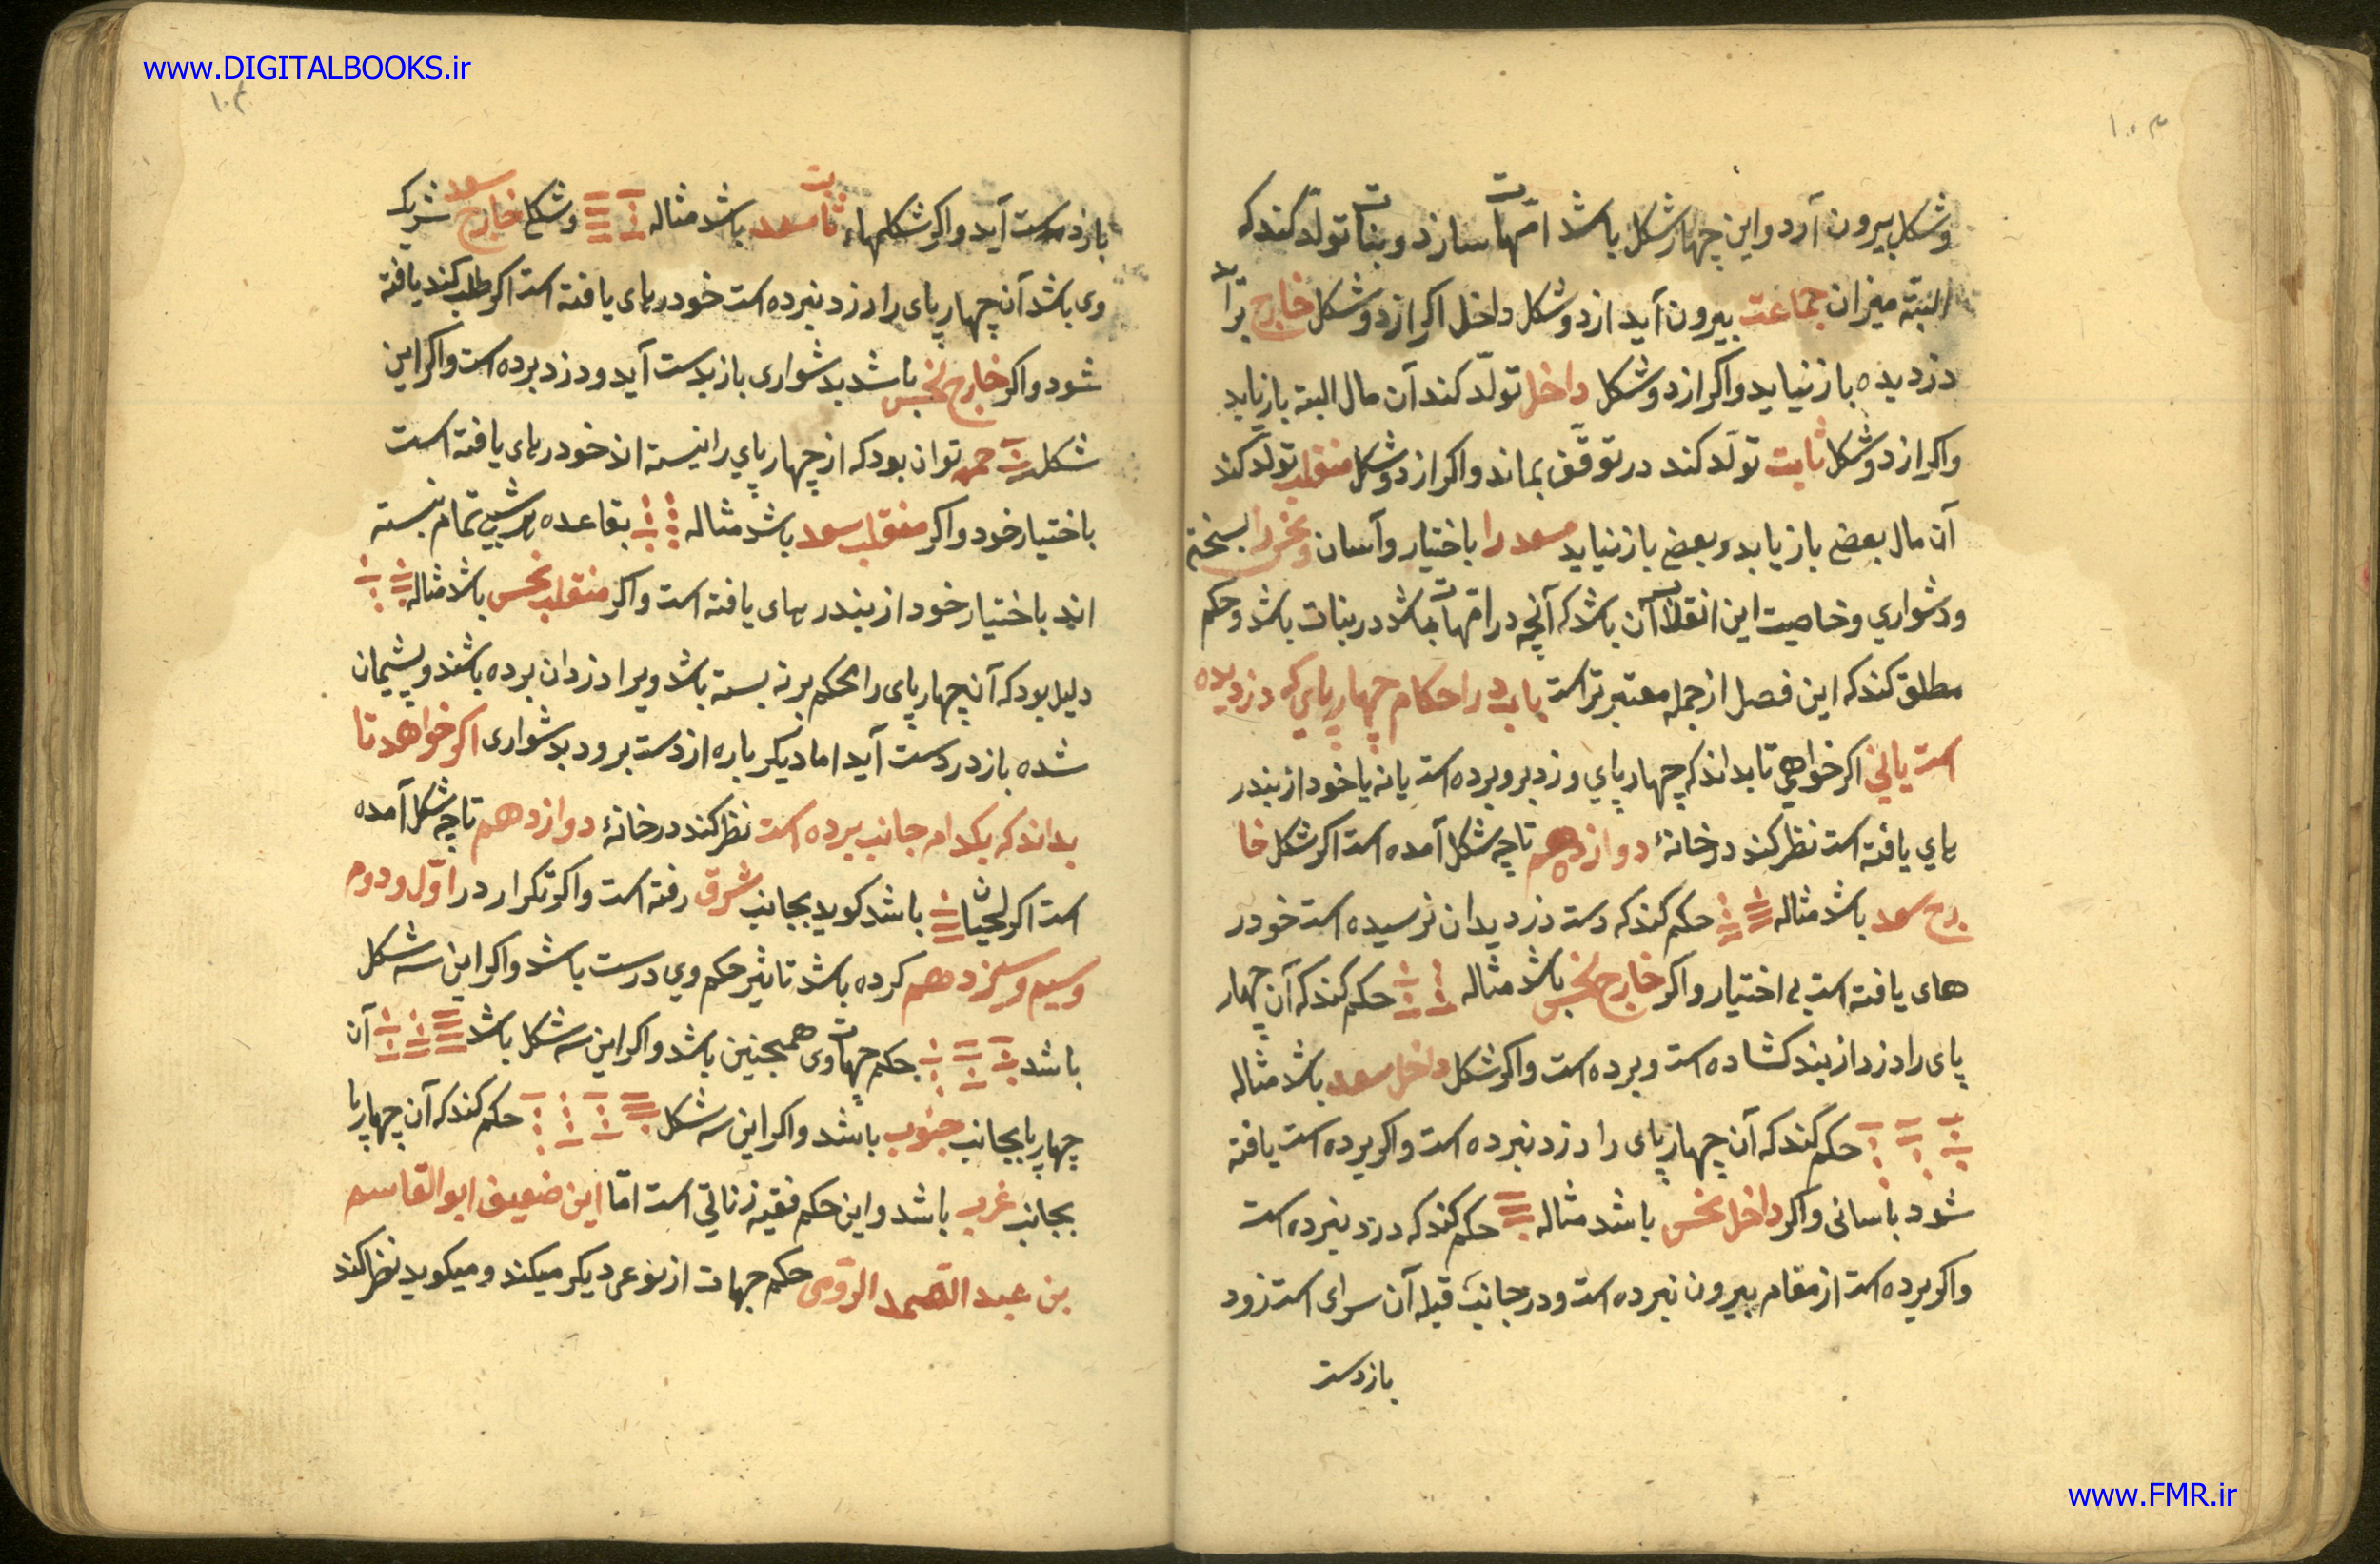 www.DIGITALBOOKS.ir
۱۰۳
وشکل بیرون آرد واین چهار شکل باشد امّهات سازد وبنات تولّد کند که
البتّه میزان جماعت بیرون آید از دوشکل داخل اکر از دوشکل خارج برآید
دزدیده باز نیاید واکر از دوشکل داخل تولّد کند آن مال البته باز یابد
واکر از دوشکل ثابت تولّد کند در توقّف بماند واکر از دوشکل منقلب تولّد کند
آن مال بعضی باز یابد وبعضی باز نیابد سعد را باختیار وآسان ونحس را بسختی
ودشواری وخاصیت این انقلاب آن باشد که آنچه در امّهات باشد در بنات باشد وحکم
مطلق کند که این فصل از جمله معتبرتر است باب در احکام چهارپای که دزدیده
است یا نی اکر خواهی تا بداند که چهارپای دزد برو برده است یا نه یا خود از بند ر
های یافته است نظر کند در خانهٔ دوازدهم تا چه شکل آمده است اکر شکل خا
رج سعد باشد مثاله حکم کند که دست دزد بدان نرسیده است خود ر
های یافته است بی اختیار واکر خارج نحس باشد مثاله حکم کند که آن چهار
پای را دزد از بند کشاده است وبرده است واکر شکل داخل سعد باشد مثاله
حکم کند که آن چهارپای را دزد نبرده است واکر برده است یافته
شود بآسانی واکر داخل نحس باشد مثاله حکم کند که دزد نبرده است
واکر برده است از مقام بیرون نبرده است ودر جانب قبله آن سرای است زود
باز دست
۱۰۴
باز دست آید واکر شکلهاء ثابت سعد باشد مثاله وشکل خارج سعد شریک
وی باشد آن چهارپای را دزد نبرده است خود رهای یافته است اکر طلب کند یافته
شود واکر خارج نحس باشد بدشواری باز بدست آید ودزد برده است واکر این
شکل حمره توان بود که از چهارپای را نبسته اند خود رهای یافته است
باختیار خود واکر منقلب سعد باشد مثاله بقاعده تمام نبسته
اند باختیار خود از بند رهای یافته است واکر منقلب نحس باشد مثاله
دلیل بود که آن چهارپای را محکم بر نه بسته باشد ویرا دزدان برده باشند وپشیمان
شده باز در دست آید اما دیکر باره از دست برود بدشواری اکر خواهد تا
بداند که بکدام جانب برده است نظر کند در خانهٔ دوازدهم تا چه شکل آمده
است اکر لحیان باشد کوید بجانب شرق رفته است واکر تکرار در اوّل ودوم
وسیم وسیزدهم کرده باشد تاثیر حکم وی درست باشد واکر این سه شکل
باشد حکم جهات وی همچنین باشد واکر این سه شکل باشد آن
چهارپا بجانب جنوب باشد واکر این سه شکل حکم کند که آن چهارپا
بجانب غرب باشد واین حکم فقیه زناتی است امّا این ضعیف ابو القاسم
بن عبد الصّمد الرّومی حکم جهات از نوعی دیکر میکند ومیکوید نظر کند
www.FMR.ir